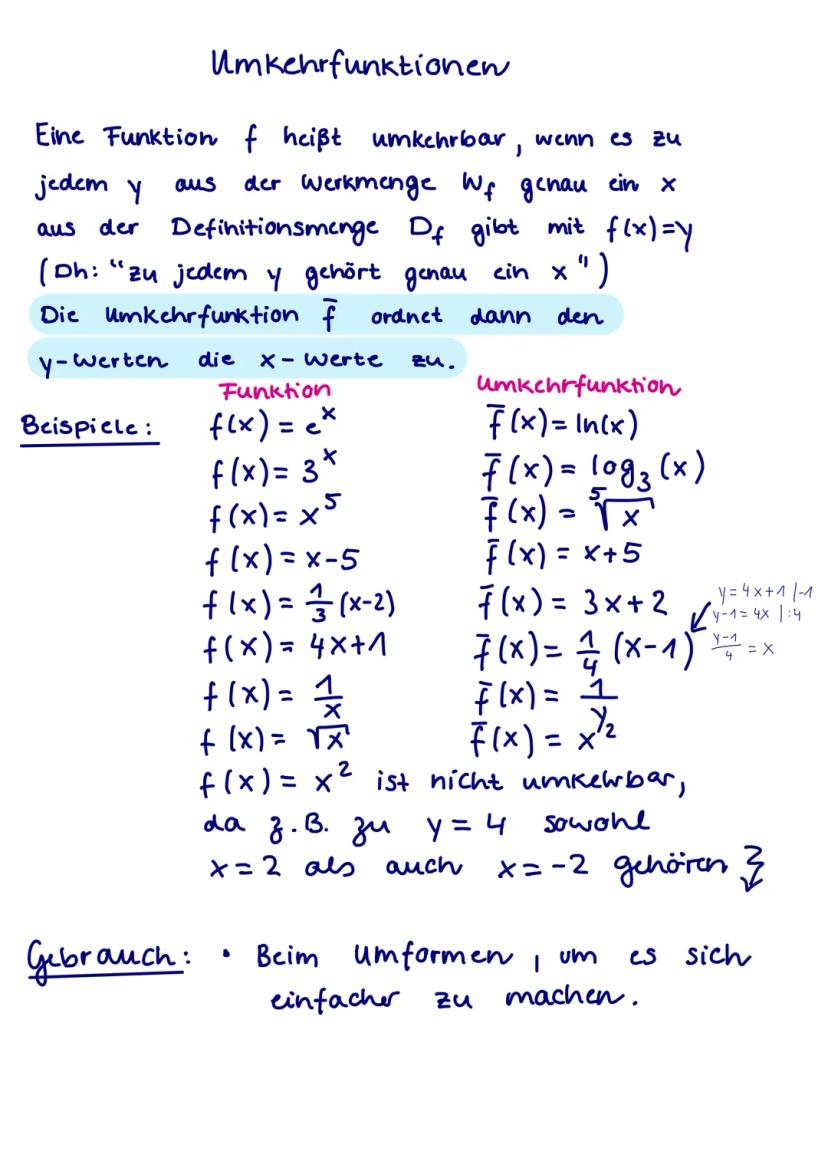 Umkehrfunktionen
Eine Funktion f heißt umkehrbar, wenn es zu
jedem y aus der Werkmenge W_f genau ein x
aus der Definitionsmenge D_f gibt mit f(x)=y
(Dh: “zu jedem y gehört genau ein x")
Die Umkehrfunktion f̄ ordnet dann den
y-Werten die x-Werte zu.
Funktion Umkehrfunktion
Beispiele: f(x) = e^x f̄(x) = ln(x)
f(x) = 3^x f̄(x) = log_3(x)
f(x) = x^5 f̄(x) = ⁵√x
f(x) = x-5 f̄(x) = x+5
f(x) = 1/3 (x-2) f̄(x) = 3x+2
y=4x+1 |-1
y-1=4x |:4
(y-1)/4 = x
f(x) = 4x+1 f̄(x) = 1/4 (x-1)
f(x) = 1/x f̄(x) = 1/y
f(x) = √x f̄(x) = x^2
f(x) = x^2 ist nicht umkehrbar,
da z.B. zu y = 4 sowohl
x=2 als auch x=-2 gehören
Gebrauch: • Beim Umformen, um es sich
einfacher zu machen.